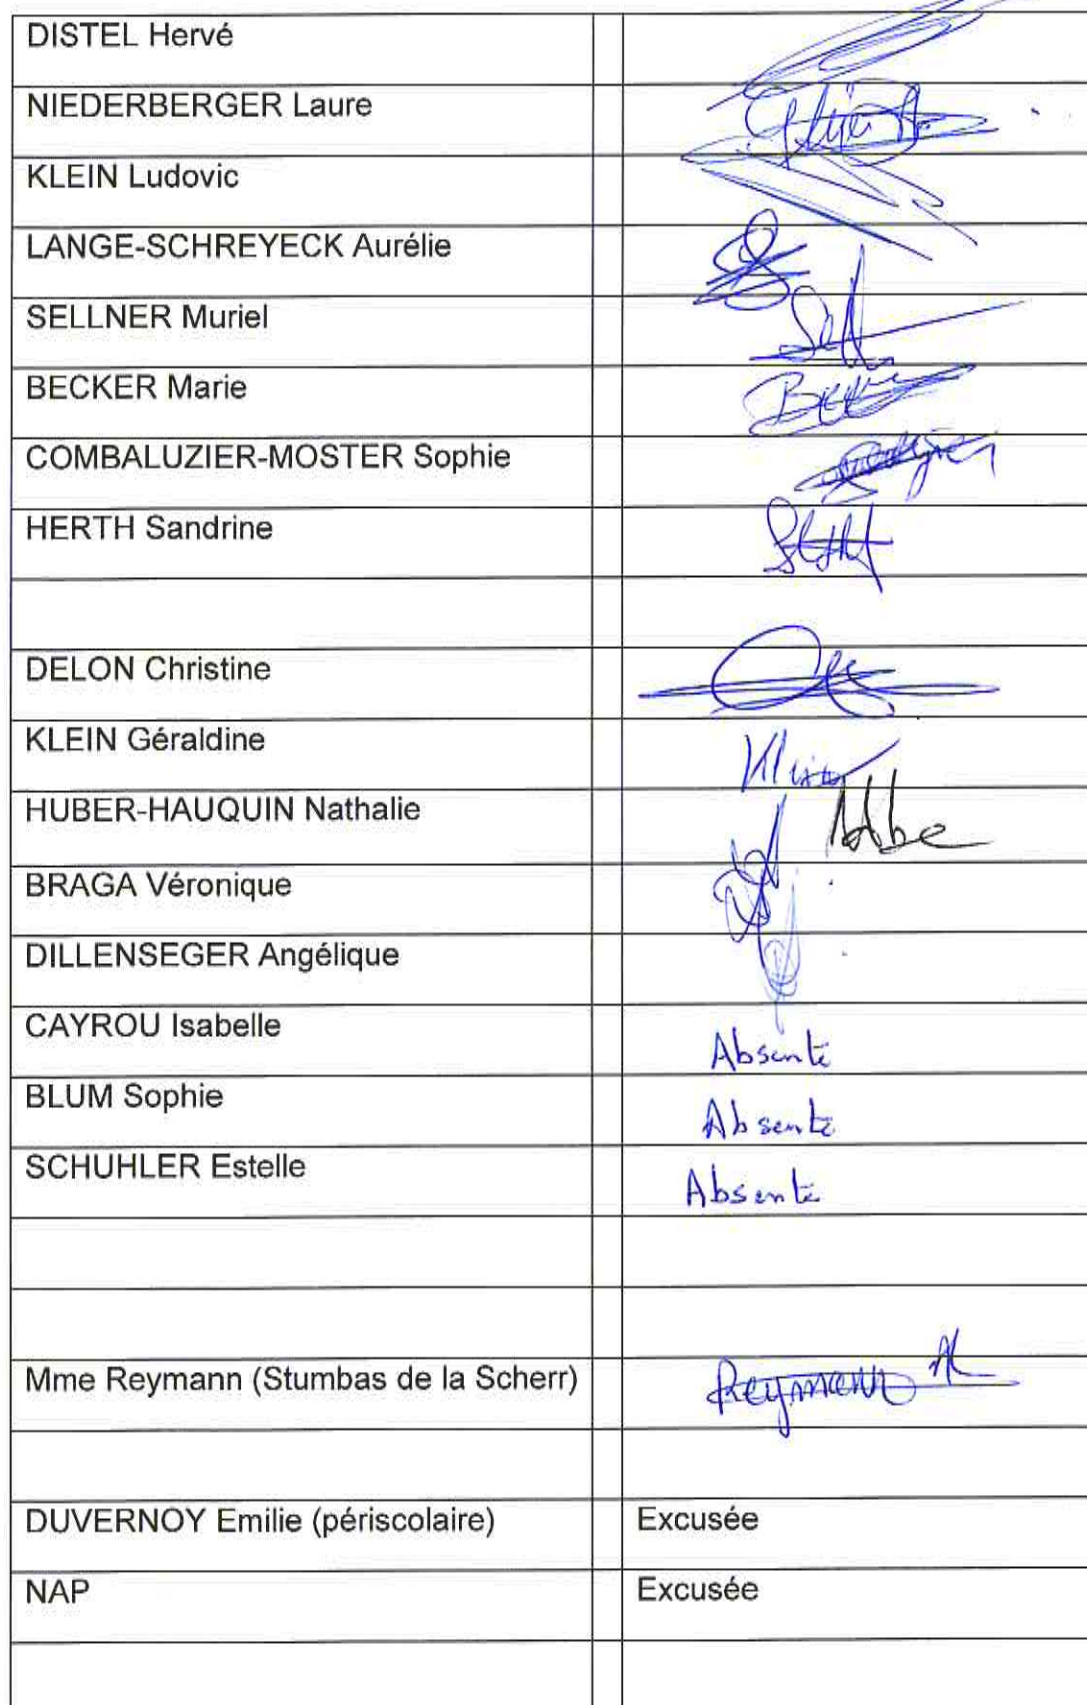 DISTEL Hervé
NIEDERBERGER Laure
KLEIN Ludovic
LANGE-SCHREYECK Aurélie
SELLNER Muriel
BECKER Marie
COMBALUZIER-MOSTER Sophie
HERTH Sandrine
DELON Christine
KLEIN Géraldine
HUBER-HAUQUIN Nathalie
BRAGA Véronique
DILLENSEGER Angélique
CAYROU Isabelle Absente
BLUM Sophie Absente
SCHUHLER Estelle Absente
Mme Reymann (Stumbas de la Scherr) Reymann
DUVERNOY Emilie (périscolaire) Excusée
NAP Excusée